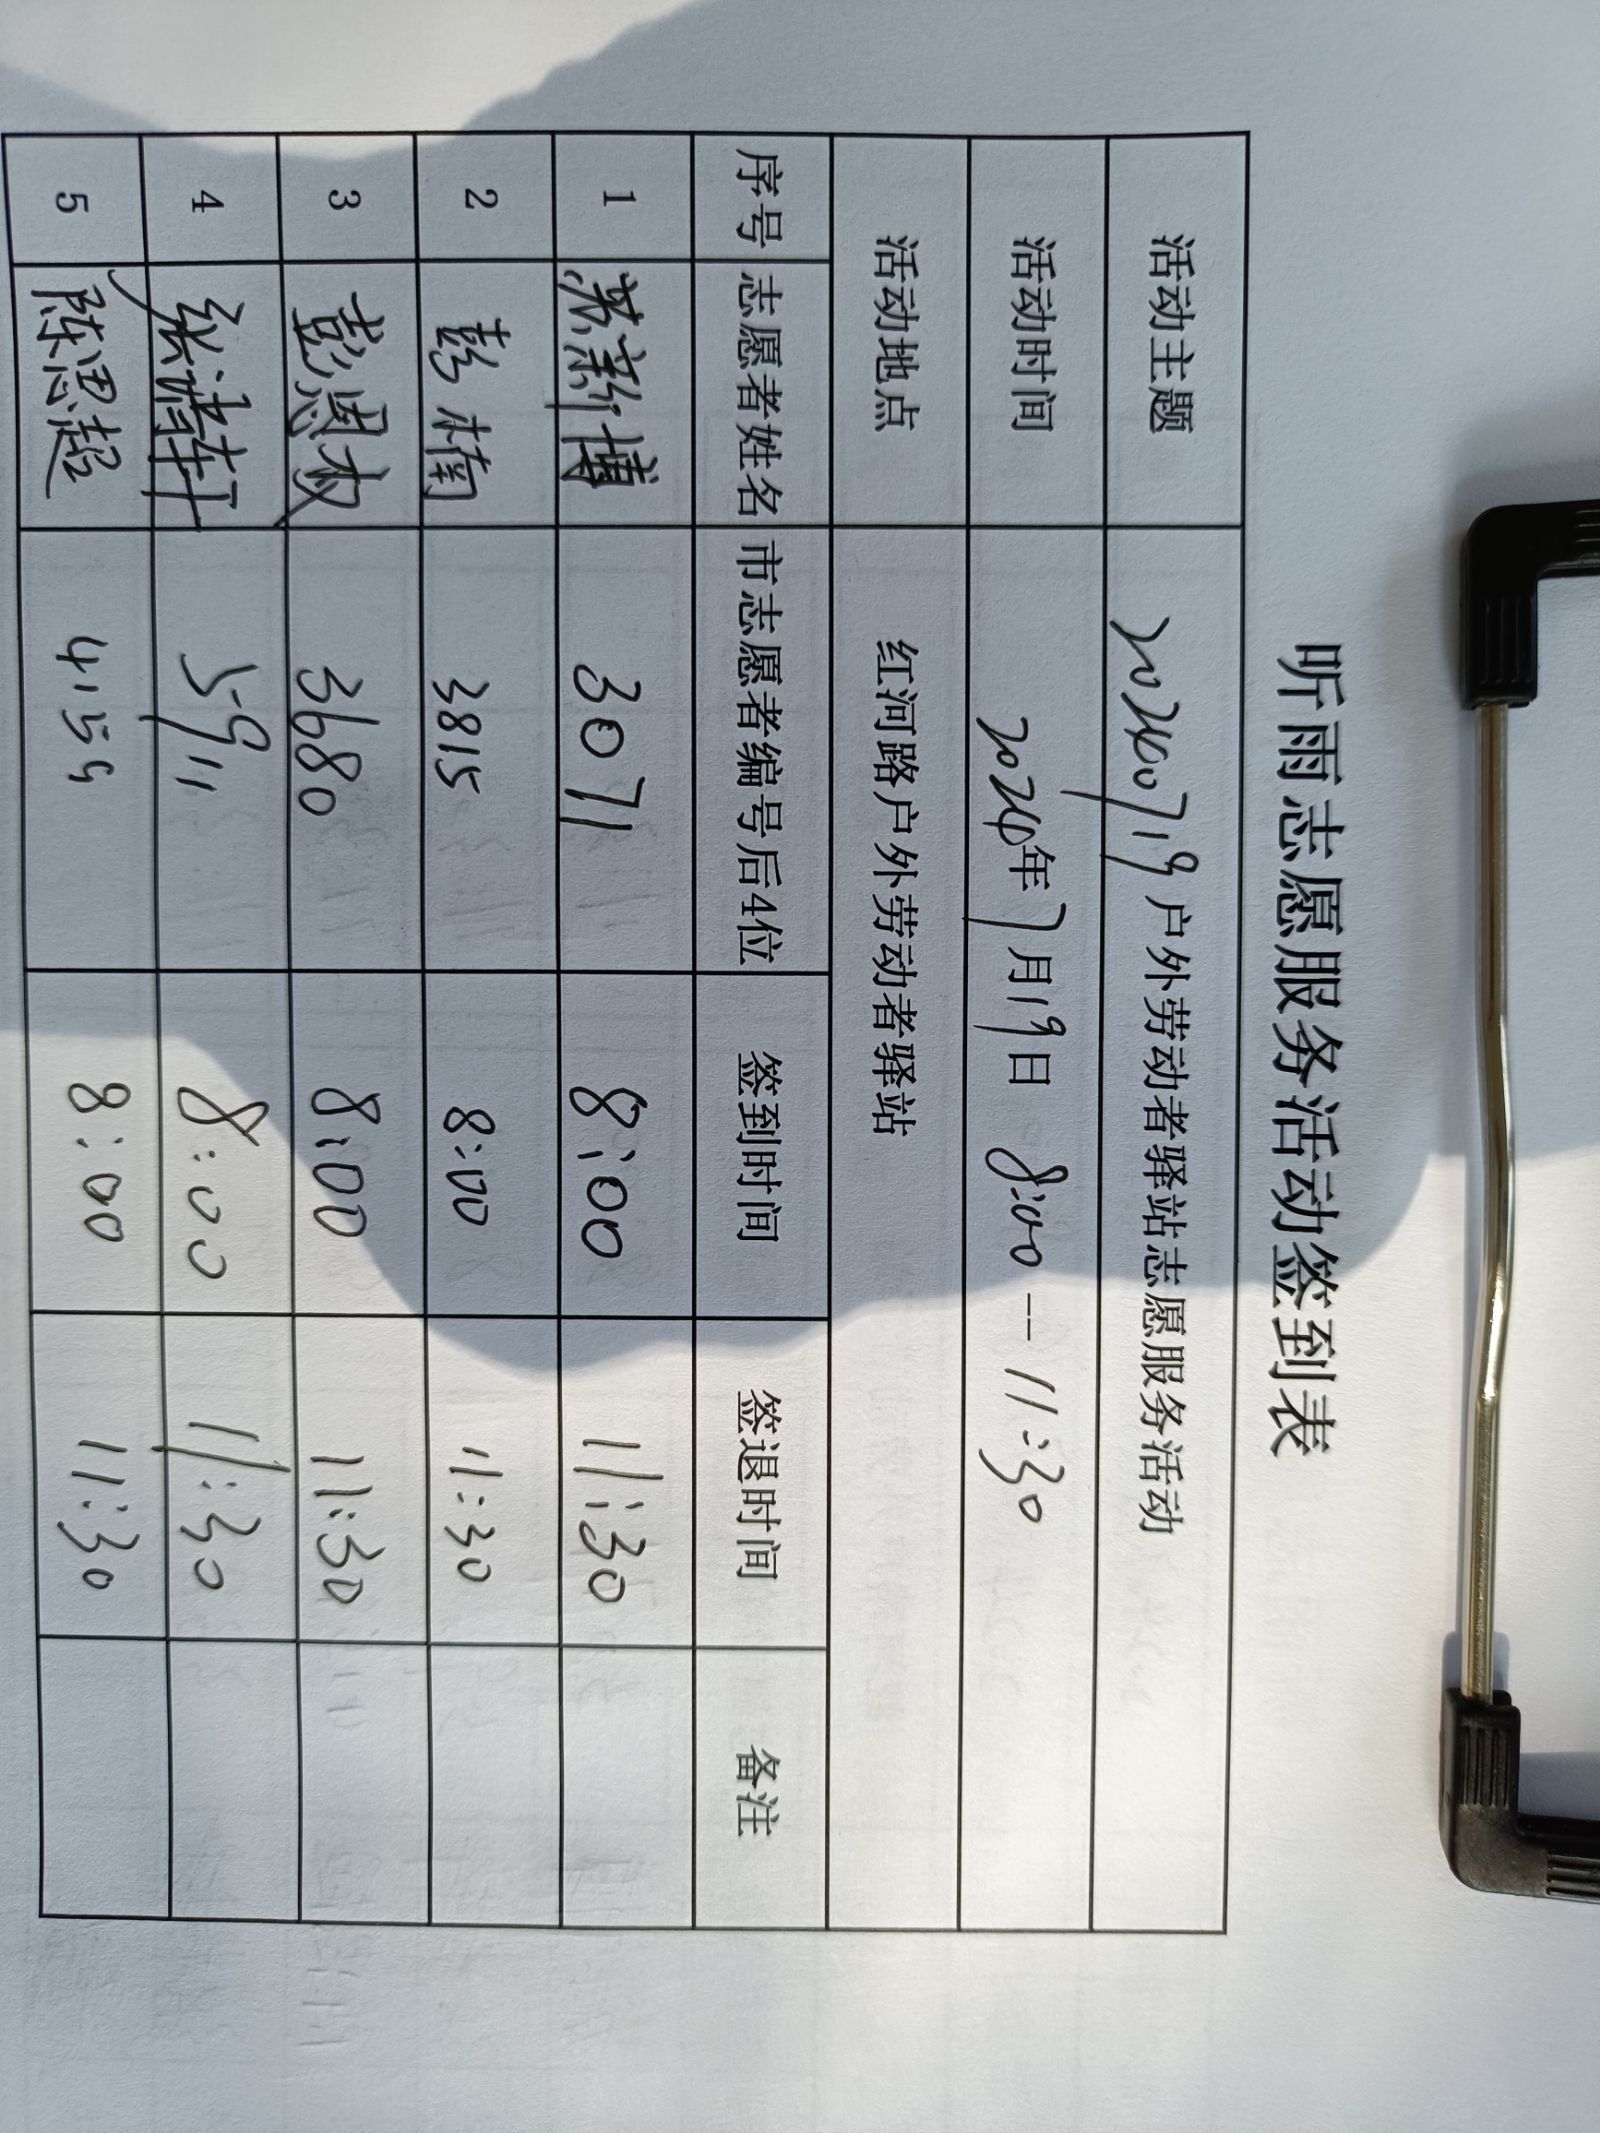 听雨志愿服务活动签到表
活动主题 20240719户外劳动者驿站志愿服务活动
活动时间 2024年7月19日 8:00--11:30
活动地点 红河路户外劳动者驿站
序号 志愿者姓名 市志愿者编号后4位 签到时间 签退时间 备注
1 苏新博 3071 8:00 11:30
2 彭楠 3815 8:00 11:30
3 彭恩权 3680 8:00 11:30
4 张清轩 5911 8:00 11:30
5 陈思超 4159 8:00 11:30